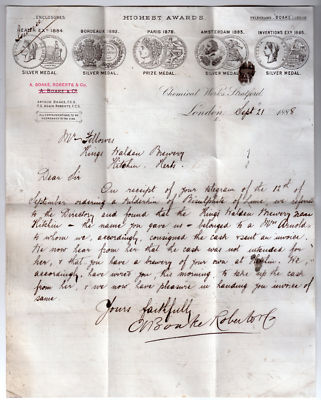 ENCLOSURES
HIGHEST AWARDS.
TELEGRAMS "BOAKE" LONDON
HEALTH EXN 1884. BORDEAUX 1882. PARIS 1878. AMSTERDAM 1883. INVENTIONS EXN 1885.
SILVER MEDAL. SILVER MEDAL. PRIZE MEDAL. SILVER MEDAL. SILVER MEDAL.
A. BOAKE, ROBERTS & Co.
A. BOAKE & Co
ARTHUR BOAKE, F.C.S.
F.G. ADAIR ROBERTS, F.C.S.
ALL COMMUNICATIONS TO BE
ADDRESSED TO THE FIRM
Chemical Works, Stratford,
London, Sept 21 1888
Mr Fellowes
Kings Walden Brewery
Hitchin Herts
Dear Sir
On receipt of your telegram of the 12th of
September ordering a of Bisulphite of Lime, we
to the Directory and found that the Kings Walden Brewery near
Hitchin – the name you gave us – belonged to a Mrs Arnold
to whom we, accordingly, consigned the cask & sent an invoice.
We now hear from her that the cask was not intended for
her, & that you have a brewery of your own at We,
accordingly, have wired you this morning, to take up the cask
from her, & we now have pleasure in handing you invoice of
same
Yours faithfully
A Boake Roberts & Co